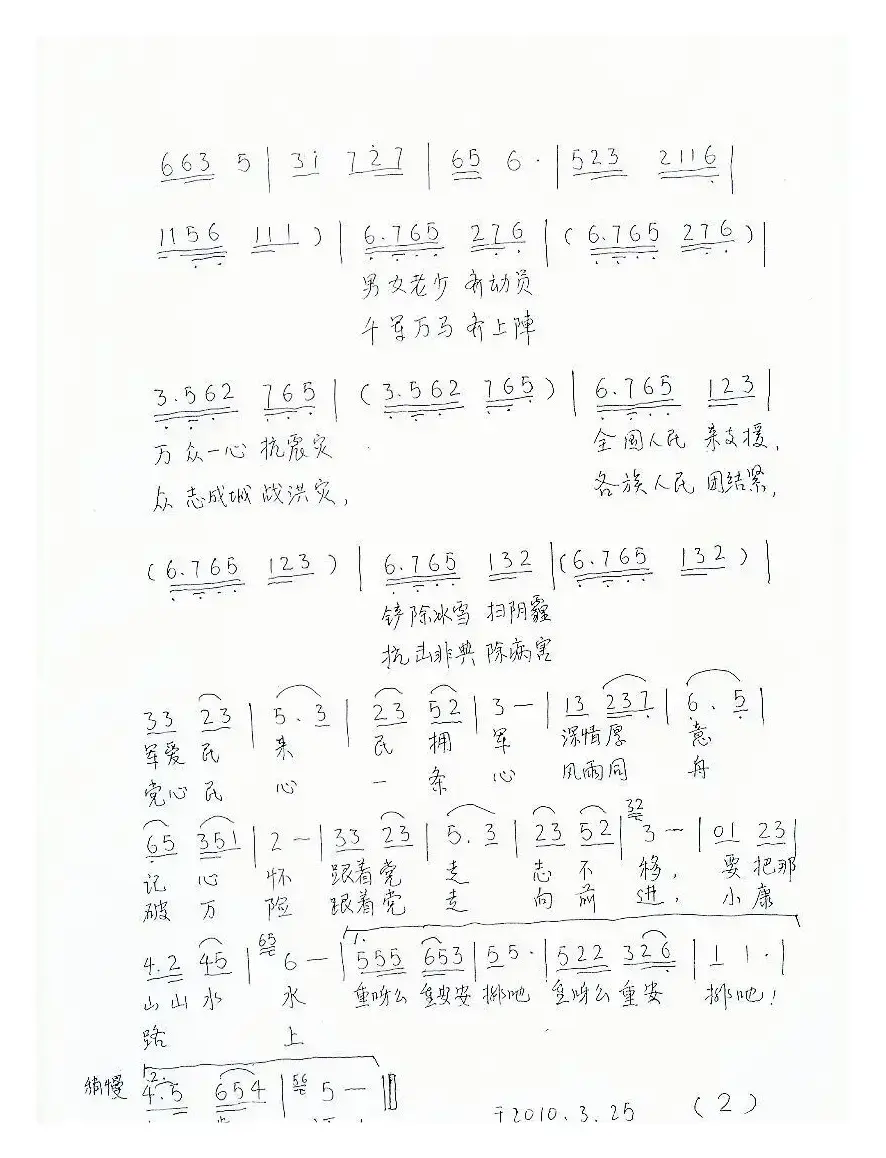 663 5 | 3i 727 | 65 6· | 523 2116 |
1156 111 ) | 6.765 276 | ( 6.765 276 ) |
男女老少 齐动员
千军万马 齐上陣
3.562 765 | ( 3.562 765 ) | 6.765 123 |
万众一心 抗震灾 全国人民 来支援,
众志成城 战洪灾, 各族人民 团结紧,
( 6.765 123 ) | 6.765 132 | ( 6.765 132 ) |
铲除冰雪 扫阴霾
抗击非典 除病害
33 23 | 5.3 | 23 52 | 3 — | 13 237 | 6.5 |
军爱民 来 民拥 军 深情厚 意
党心民 心 一条 心 风雨同 舟
65 351 | 2 — | 33 23 | 5.3 | 23 52 | 32 3 — | 01 23 |
记心 怀 跟着党 走 志不 移, 要把那
破万 险 跟着党 走 向前 进, 小康
4.2 45 | 65 6 — | 1. 555 653 | 55· | 522 326 | 1 1· |
山山水 水 重呀么 重安安 排吧 重呀么 重安 排吧!
路 上
稍慢 2. 4.5 654 | 56 5 — ‖
于2010.3.25 (2)